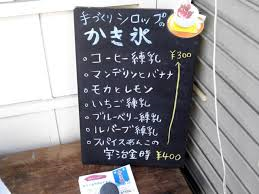 手づくりシロップの
かき氷
◦コーヒー練乳 ¥300
◦マンデリンとバナナ
◦モカとレモン
◦いちご練乳
◦ブルーベリー練乳
◦ルバーブ練乳
◦スパイスあんこの
宇治金時 ¥400